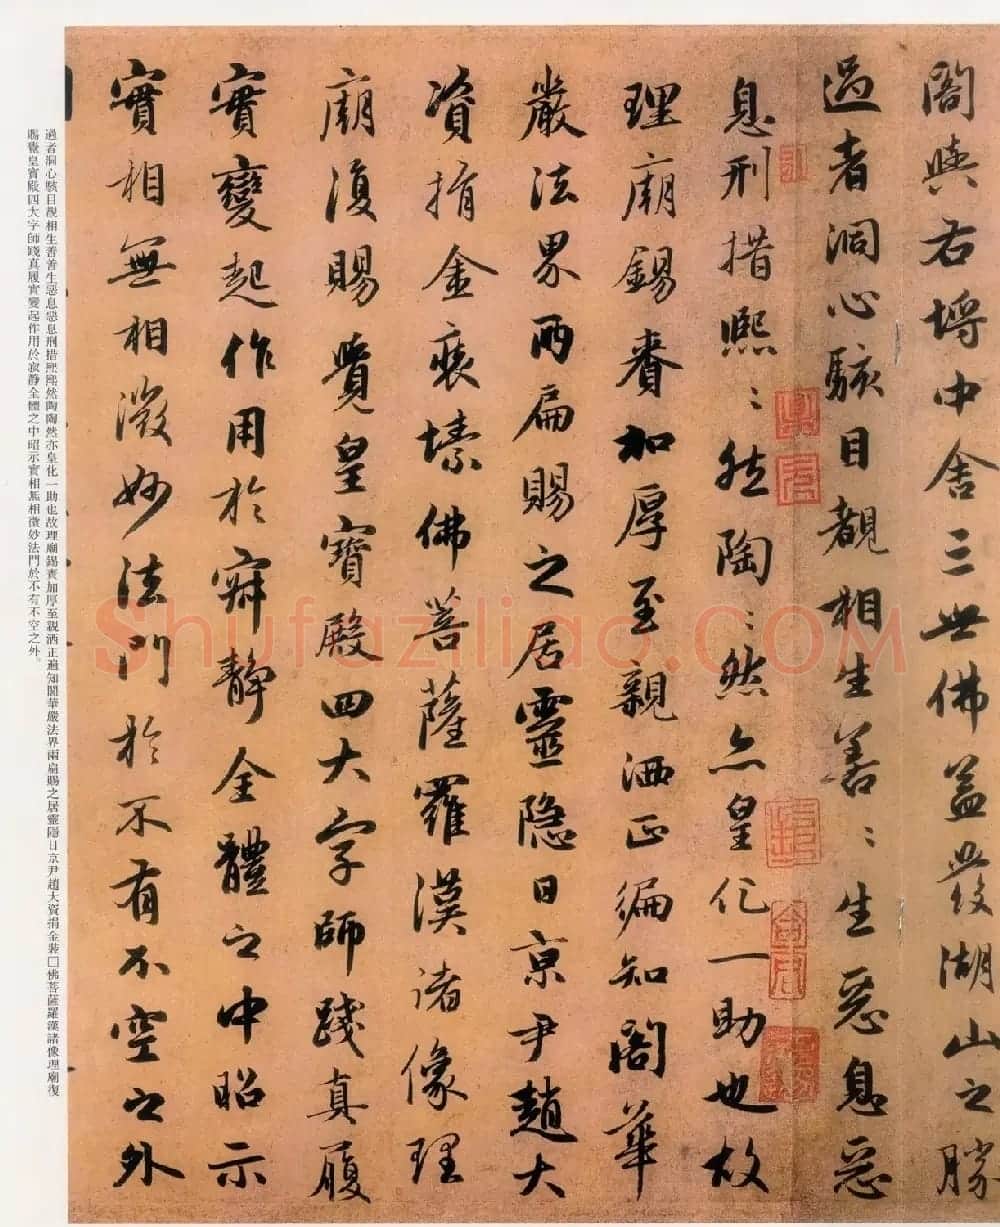 閣與右塝中舍三世佛蓋發湖山之勝
過者洞心駭目覩相生善〻生惡息惡
息刑措熙〻然陶〻然亦皇化一助也故
理廟錫賚加厚至親洒正徧知閣華
嚴法界兩扁賜之居靈隱日京尹趙大
資捐金裝塐佛菩薩羅漢諸像理
廟復賜覺皇寶殿四大字師踐真履
實變起作用於寂靜全體之中昭示
實相無相微妙法門於不有不空之外
過者洞心駭目覩相生善善生惡息惡息刑措熙熙然陶陶然亦皇化一助也故理廟錫賚加厚至親洒正遍知閣華嚴法界兩扁賜之居靈隱日京尹趙大資捐金裝□佛菩薩羅漢諸像理廟復
賜覺皇寶殿四大字師踐真履實變起作用於寂靜全體之中昭示實相無相微妙法門於不有不空之外。
Shufaziliao.COM